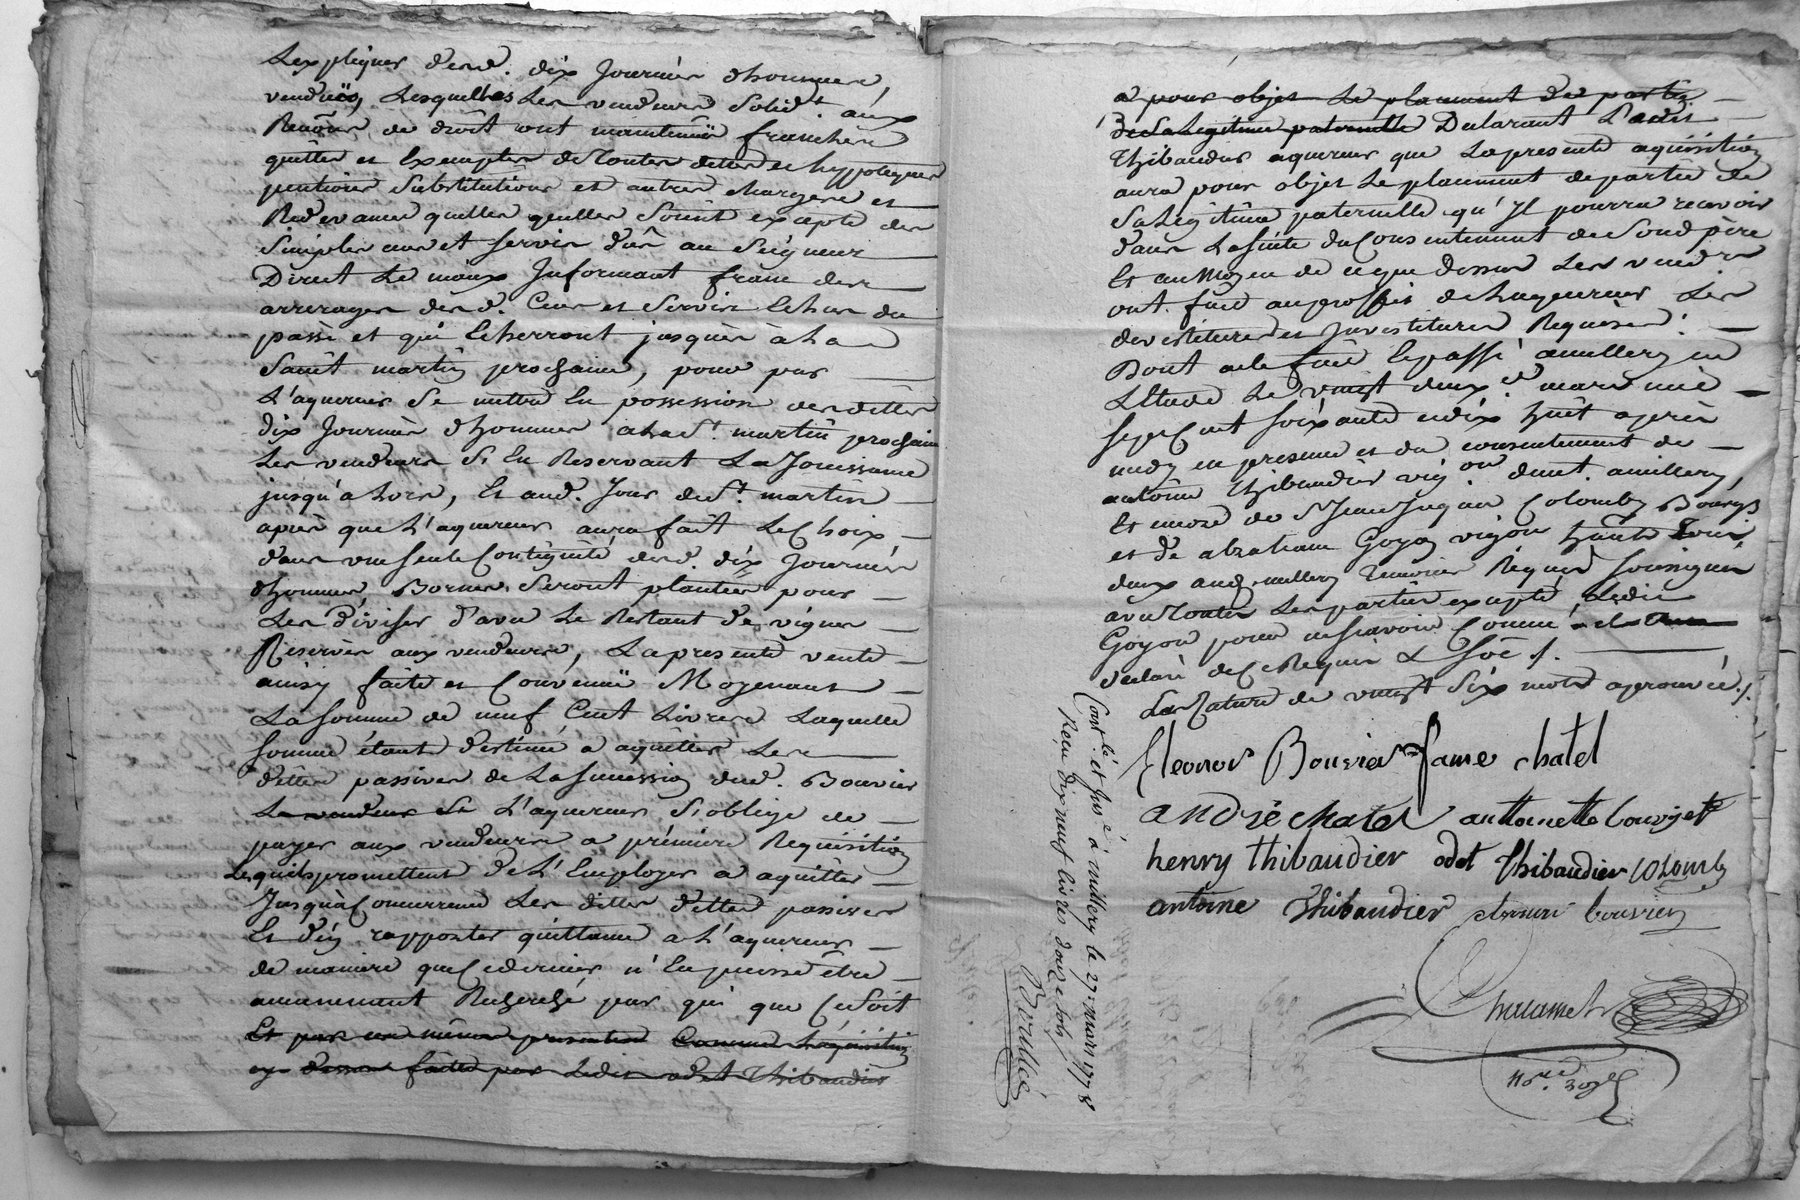 Lexpliquer desd. dix Journées dhommes,
vendües, Lesquelles Les vendeurs Solidt. aux
Renôns de droit ont maintenüe franches
quittes et Exemptes de toutes dettes et hyppoteques
pentions Substitutions et autres charges et
Redevances quelles quelles Soint excepté des
Simples cens et Servis dûs au Seigneur
Direct Le mieux Informant franc des
arrerages desd. Cens et Servis Echus du
passé et qui Echerront jusques à La
Saint martin prochaine, pour par
L'aquereur Se mettre En possession desdittes
dix Journées dhommes alad. St. martin prochaine
Les vendeurs S'En Reservant La Jouissance
jusqu'a Lors, Et aud. Jour de St. martin
après que L'aquereur aura fait Le Choix
dans une seule Contiguité desd. dix Journées
dhommes, Bornes Seront plantées pour
Les Diviser d'avec Le Restant des vignes
Reservées aux vendeurs, La presente vente
ainsy faite et Convenüe Moyenant
La Somme de neuf Cent Livres Laquelle
Somme étant destinée a aquitter Les
dettes passives de La Succession dud. Bouvier
Le vendeur Se L'aquereur S'oblige de
payer aux vendeurs a prémiere Requisition
Lesquels promettent de L'Employer a aquitter
Jusqu'a Concurrence Les dittes dettes passives
Et d'en rapporter quittance a L'aquereur
de maniere que Ce dernier n'En puisse être
aucunement Recherché par qui que Ce Soit
Et par ces mêmes presentes Comme L'aquisition
cy dessus faitte par Ledit odet Thibaudier
a pour objet Le placement de partie
de Sa Legitime paternelle Declarant Ledit
Thibaudier aquereur que La presente aquisition
aura pour objet Le placement de partie de
Sa Legitime paternelle qu'Il pourra recevoir
dans La Suite du Consentement de Sond père
Et au Moyen de ce que dessus Les vendrs
ont fait au proffit de Laquereur Les
devestitures et Investitures Requises:
Dont acte fait Et passé a millery en
L'Etude Le vingt deux e mars mil
Sept Cent Soixante et dix huit après
midy en presence et du consentement de
antoine Thibaudier vigon dud.t millery
Et encore de Sr Jean Jaques Colomby Bourgs
et de abraham Goyon vigon habits tous
deux aud. millery Temoins Requis soussignés
avec toutes Les parties excepté Ledit
Goyon pour ne Scavoir Comme il
declaré de Ce Requis & Soê /.
La Rature de vingt Six mots aprouvée /.
Eleonor Bouvier fame chatel
andré chatel anttoinette bouvjet
henry thibaudier odet thibaudier Colomby
antoine thibaudier bouvier
Nore. Royl
Contlé et Insé à millery le 27 mars 1778
Reçu dix neuf livres douze sols /